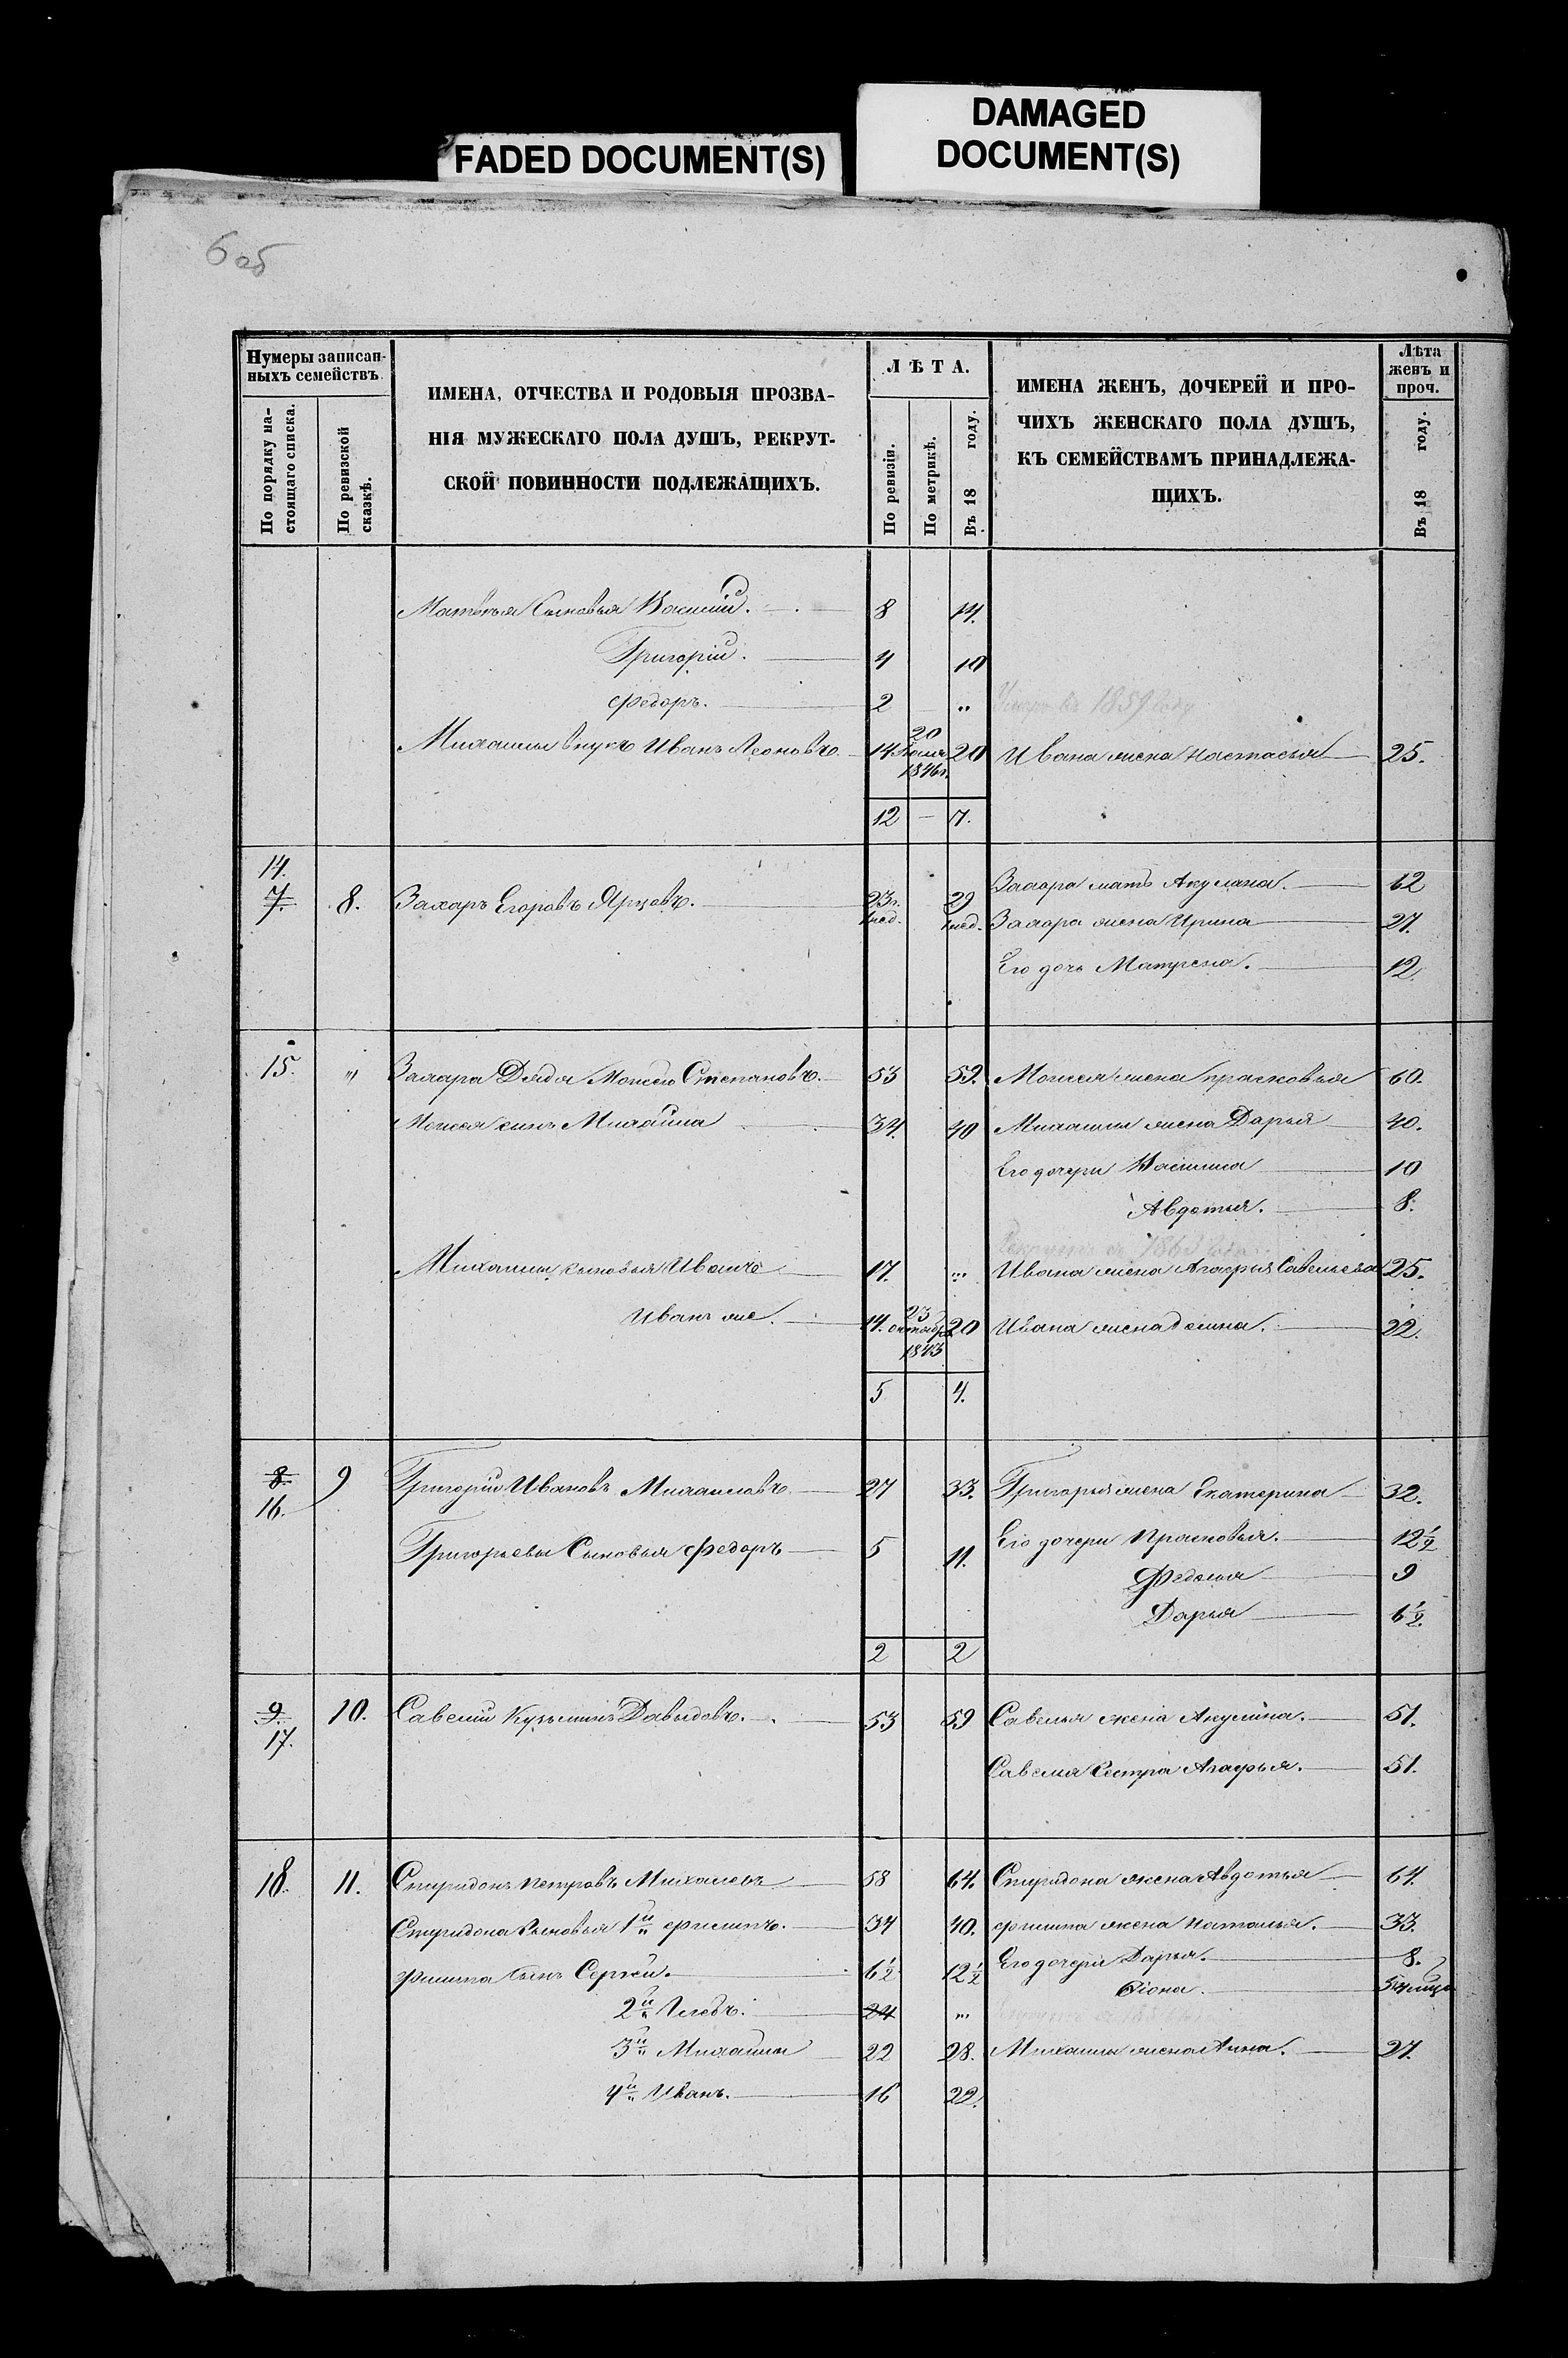 FADED DOCUMENT(S)
DAMAGED
DOCUMENT(S)
6 об
Нумеры записан-
ныхъ семействъ
По порядку на-
стоящаго списка.
По ревизской
сказкѣ.
ИМЕНА, ОТЧЕСТВА И РОДОВЫЯ ПРОЗВА-
НІЯ МУЖЕСКАГО ПОЛА ДУШЪ, РЕКРУТ-
СКОЙ ПОВИННОСТИ ПОДЛЕЖАЩИХЪ.
ЛѢТА.
По ревизіи.
По метрикѣ.
Въ 18 году.
ИМЕНА ЖЕНЪ, ДОЧЕРЕЙ И ПРО-
ЧИХЪ ЖЕНСКАГО ПОЛА ДУШЪ,
КЪ СЕМЕЙСТВАМЪ ПРИНАДЛЕЖА-
ЩИХЪ.
Лѣта
женъ и
проч.
Въ 18 году.
Матвѣя Сыновья Василій. 8 14.
Григорій. 4 10
Федоръ. 2 " Умеръ въ 1859 году
Михаилы внукъ Иванъ Леоновъ 14 20 1846 г. 20 Ивана жена Настасья 25.
12 — 7.
14.
7. 8. Захаръ Егоровъ 23 г. 29 Захара мать Акулина. 62
нед. нед. Захара жена Ирина 27.
Его дочь Матрена. 12.
15. " Захара Дядя Моисей Степановъ. 53 59. Моисея жена Прасковья 60.
Моисея сынъ Михайла 34. 40 Михайлы жена Дарья 40.
Его дочери Василиса 10
Авдотья. 8.
1863 года
Михайлы сыновья Иванъ 17. " Ивана жена Агафья Савельева 25.
Иванъ же. 14. 23 октября 1843 20 Ивана жена 22.
5 4.
8.
16. 9 Григорій Ивановъ Михаиловъ 27 33. Григорья жена Екатерина 32.
Григорьевы Сыновья Федоръ 5 11. Его дочери Прасковья. 12½
Федосья 9
Дарья 6½.
2 2
9.
17. 10. Савелій Кузьминъ Давыдовъ. 53 59 Савелья жена Акулина. 51.
Савелья Сестра Агафья. 51.
18. 11. Спиридонъ Петровъ Михалевъ 58 64. Спиридона жена Авдотья 64.
Спиридона Сыновья 1й Филипъ. 34 40. Филипа жена Наталья. 33.
Филипа Сынъ Сергѣй. 6½ 12½ Его дочери Дарья. 8.
2й Глебъ. 24 "
3й Михайлы 22 28. Михайлы жена Анна. 27.
4й Иванъ. 16 22.